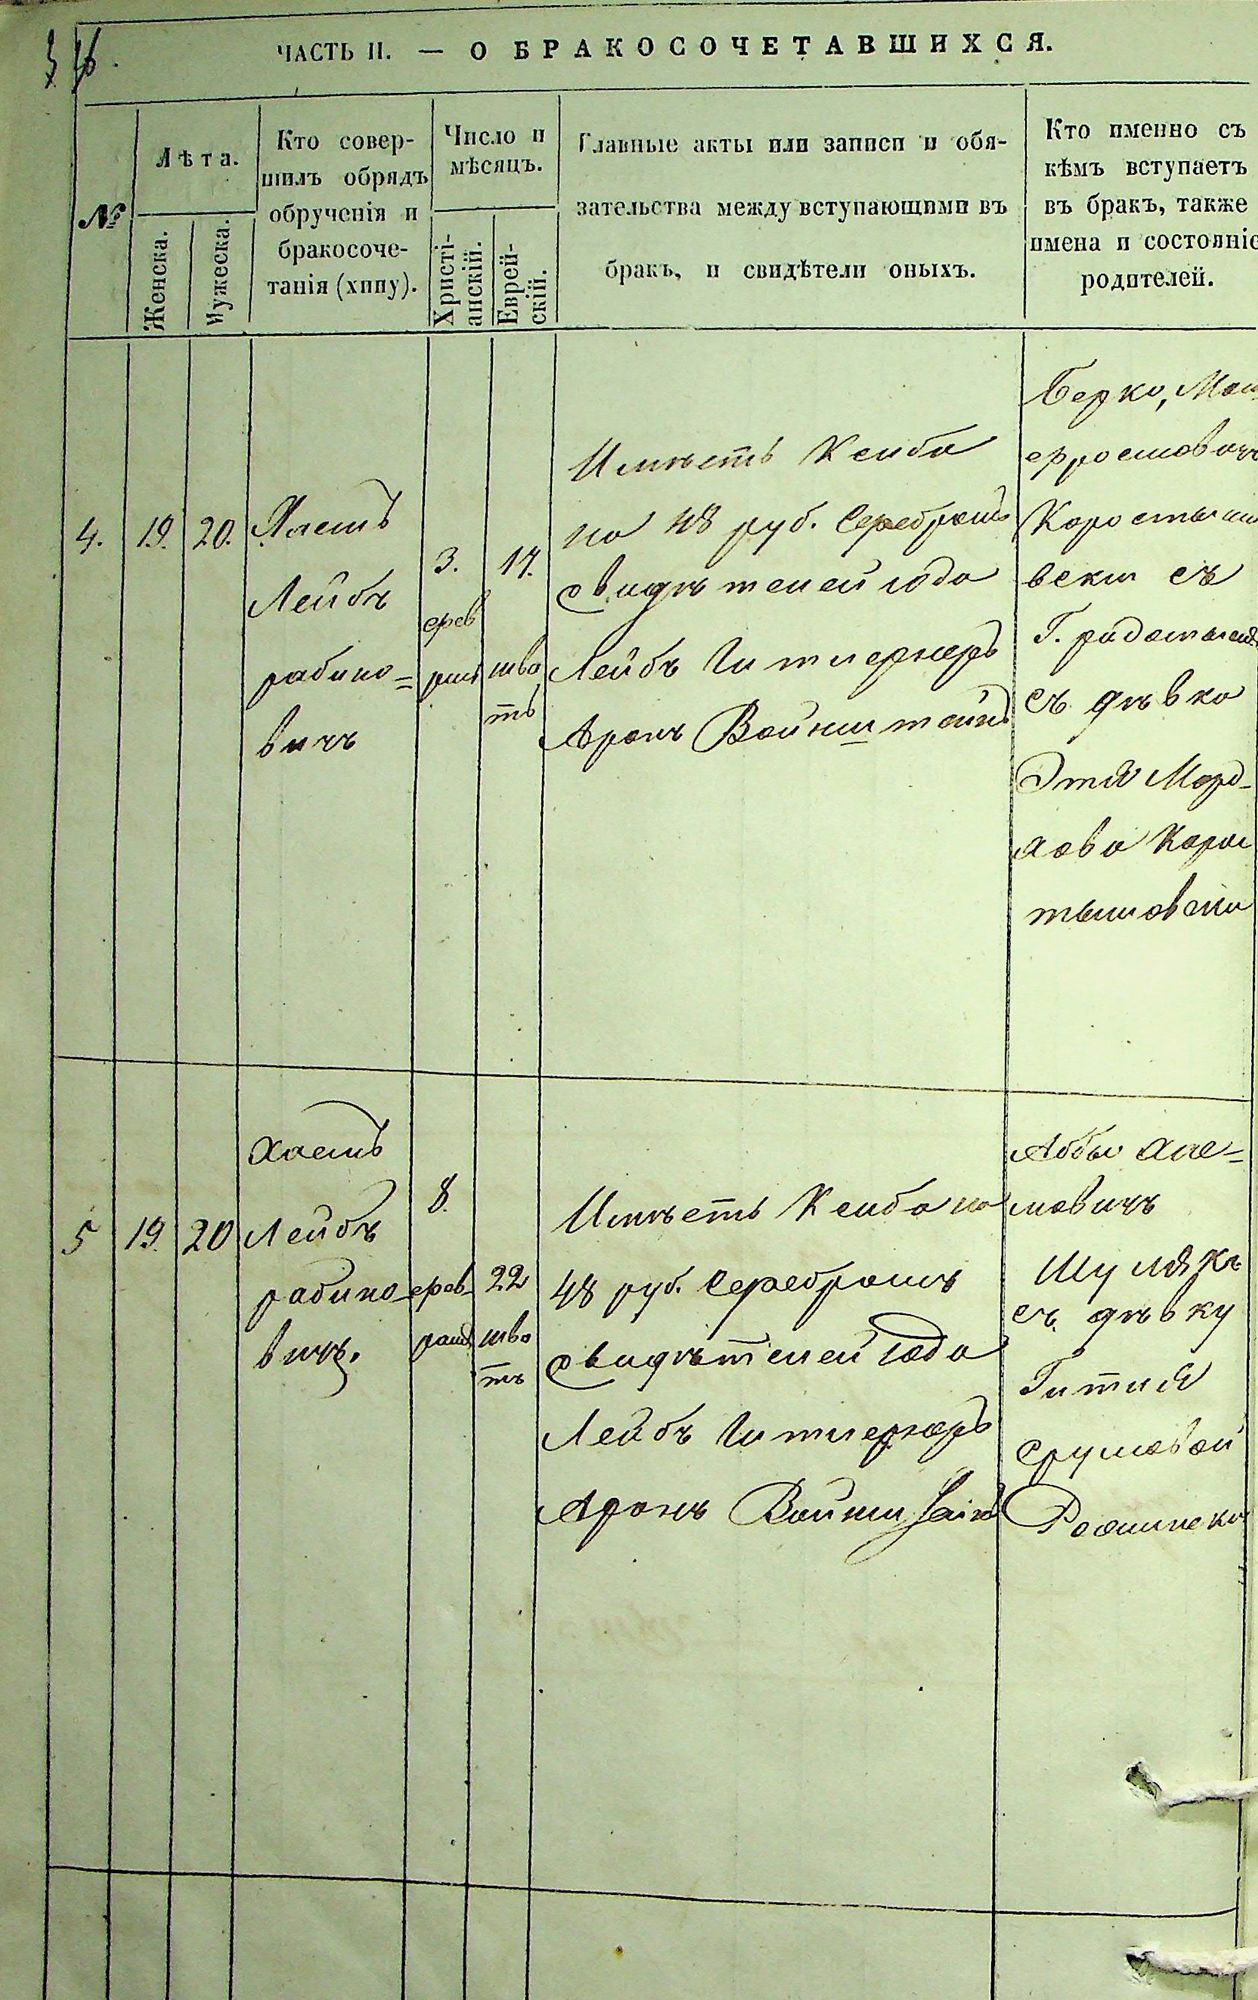 ЧАСТЬ II. — О БРАКОСОЧЕТАВШИХСЯ.
№
Лѣта.
Женска.
Мужеска.
Кто совер-
шилъ обрядъ
обрученія и
бракосоче-
танія (хипу).
Число и
мѣсяцъ.
Христі-
анскій.
Еврей-
скій.
Главные акты или записи и обя-
зательства между вступающими въ
бракъ, и свидѣтели оныхъ.
Кто именно съ
кѣмъ вступаетъ
въ бракъ, также
имена и состояніе
родителей.
4.
19.
20.
Хаемъ
Лейбъ
рабино=
вичъ
3.
фев
рал
17.
шва
тъ
Имѣетъ Ксиба
на 48 руб. Серебромъ
свидѣтелей
Лейбъ
Аронъ Войнштейнъ
Берко,
Коростыши
вски съ
Г. радомысля
съ дѣвко
Этля Морд-
хова Корос
тышовски
5
19.
20
Хаемъ
Лейбъ
рабино-
вичъ.
8.
фев-
рал
22
шва
тъ
Имѣетъ Ксиба на
48 руб. Серебромъ
свидѣтелей
Лейбъ
Аронъ
Аббы Хае=
мовичъ
Шулякъ
съ дѣвку
Гитля
Срулевой